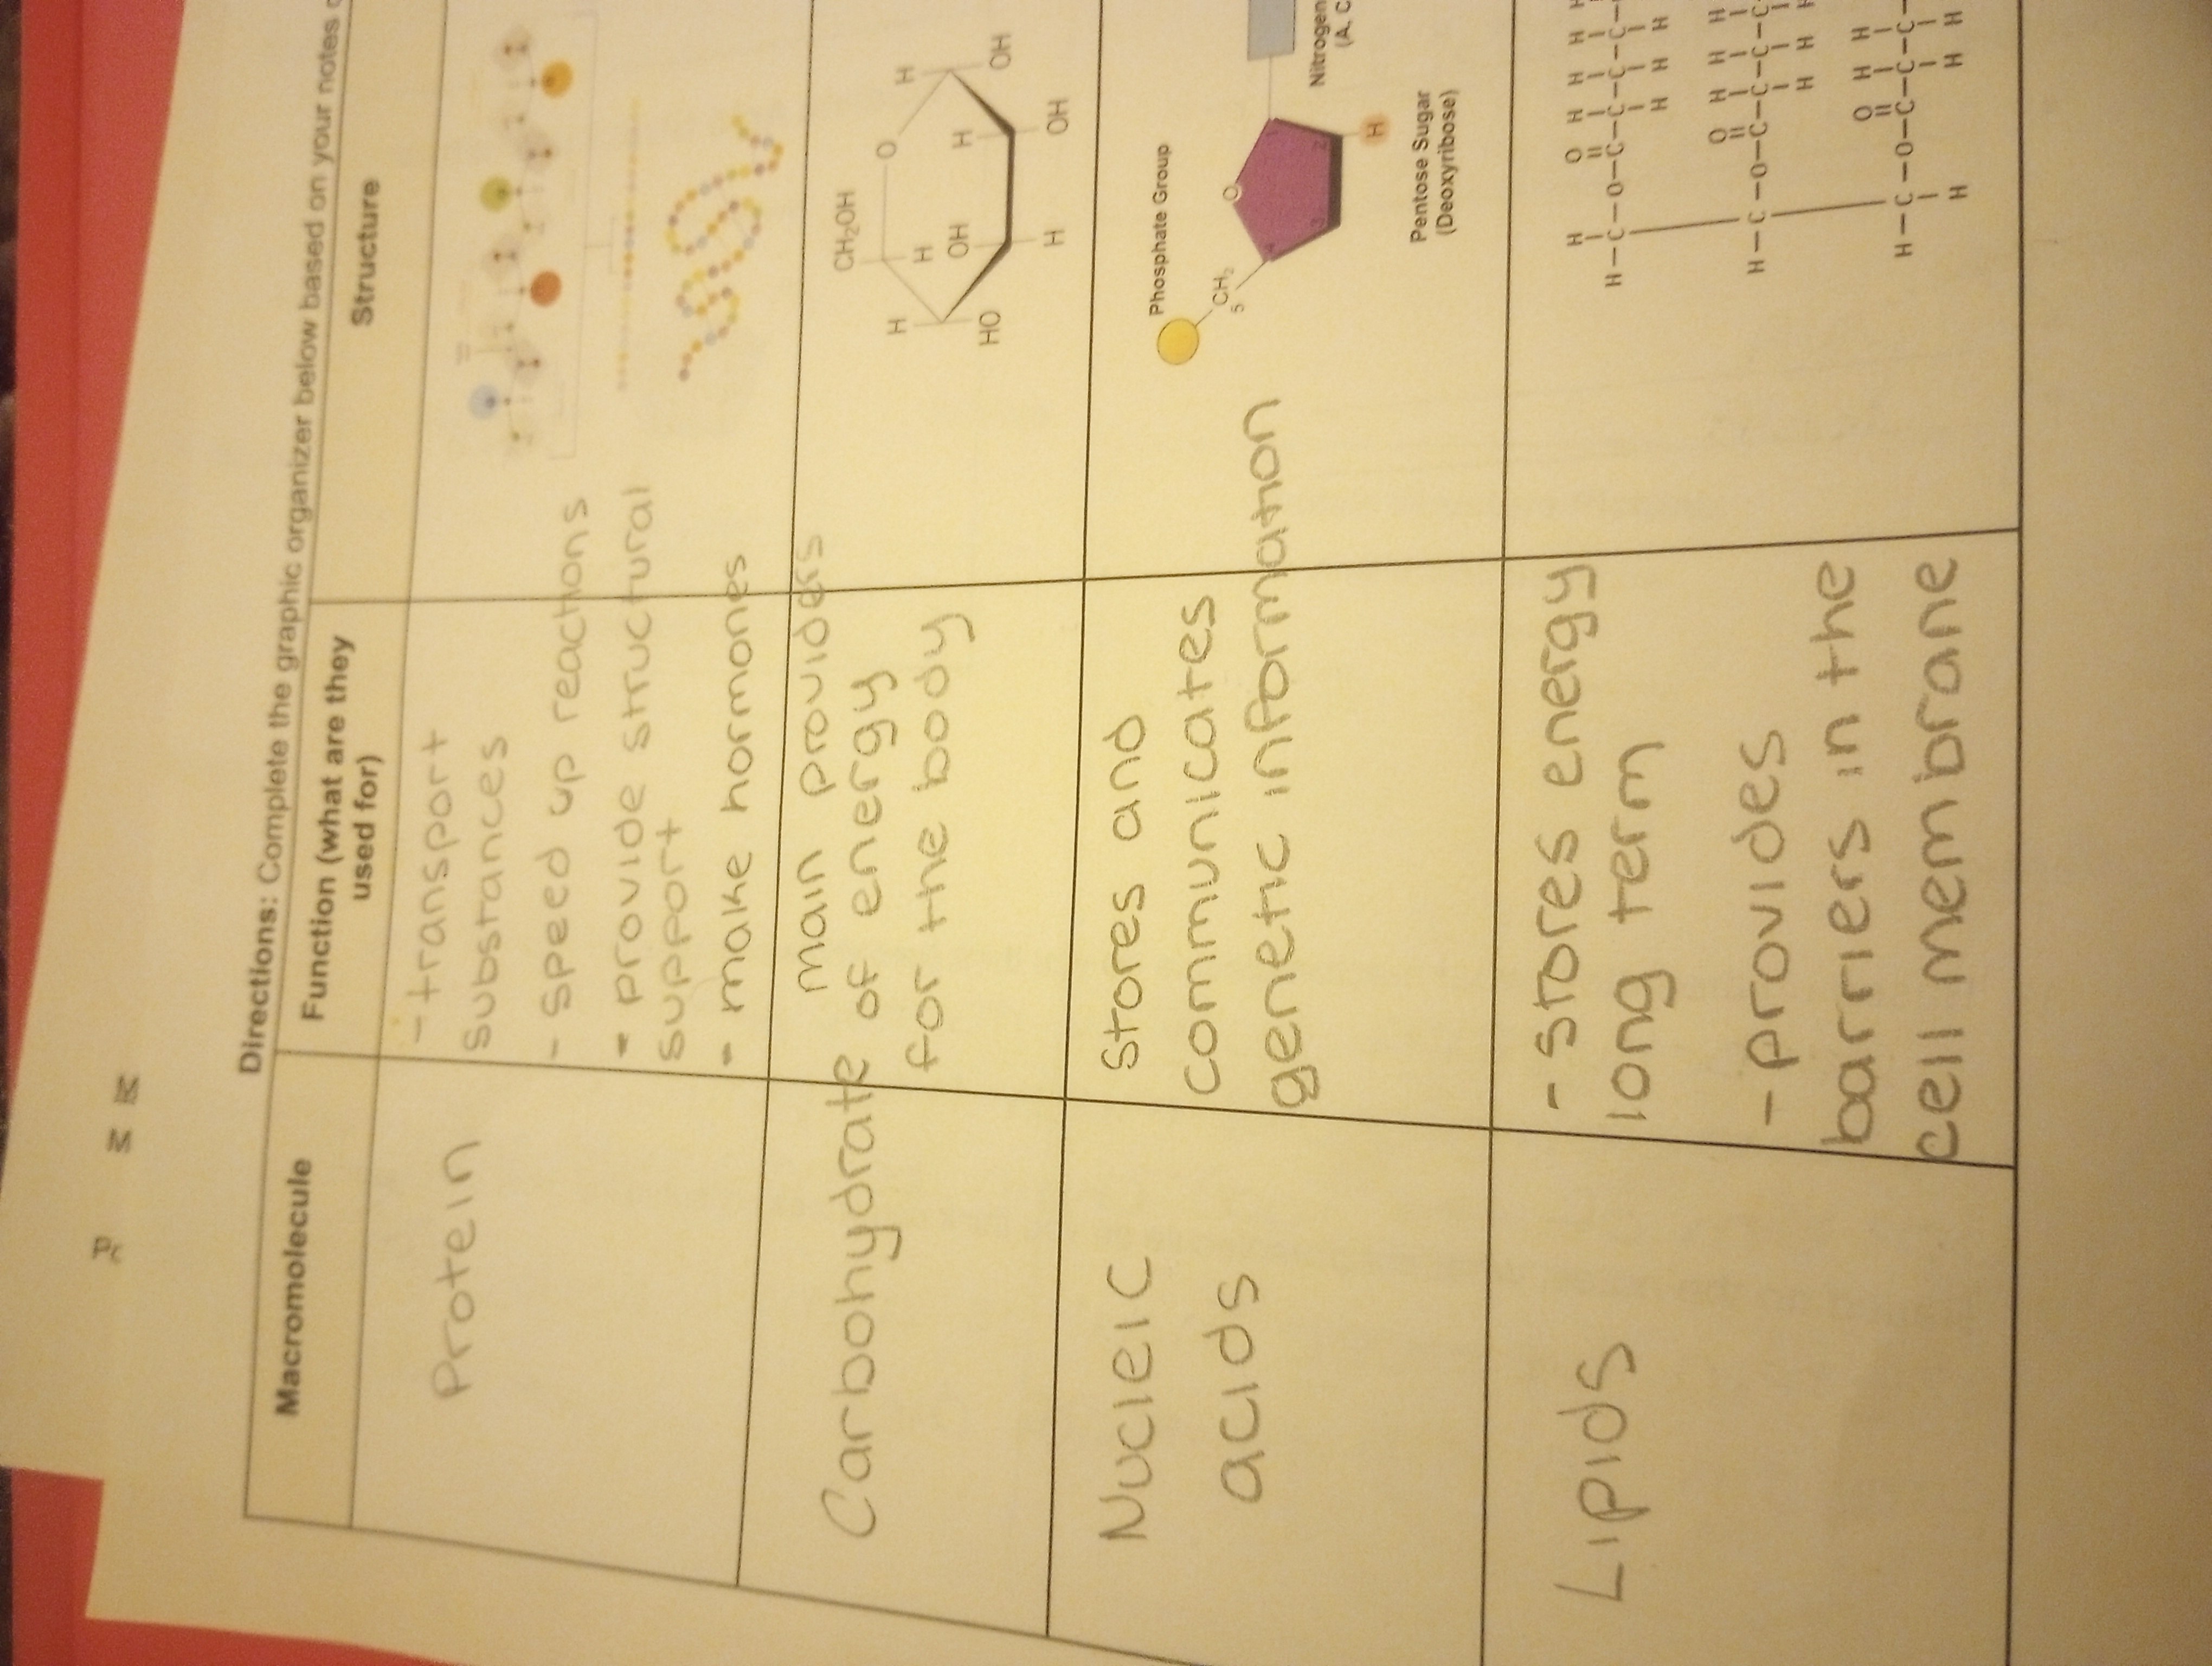 Directions: Complete the graphic organizer below based on your notes
Macromolecule
Function (what are they
used for)
Structure
Protein
- transport
substances
- speed up reactions
- provide structural
support
- make hormones
Carbohydrate
main providers
of energy
for the body
CH2OH
H
O
H
H
OH
H
HO
OH
H
OH
Nucleic
acids
Stores and
communicates
genetic information
Phosphate Group
5 CH2
O
4
1
3
2
H
Nitrogen
Pentose Sugar
(Deoxyribose)
(A, C
Lipids
- stores energy
long term
- provides
barriers in the
cell membrane
H O H H H H
H-C-O-C-C-C-C-
H H H
O H H H
H-C-O-C-C-C-C
H H H
O H H
H-C-O-C-C-C-
H H H